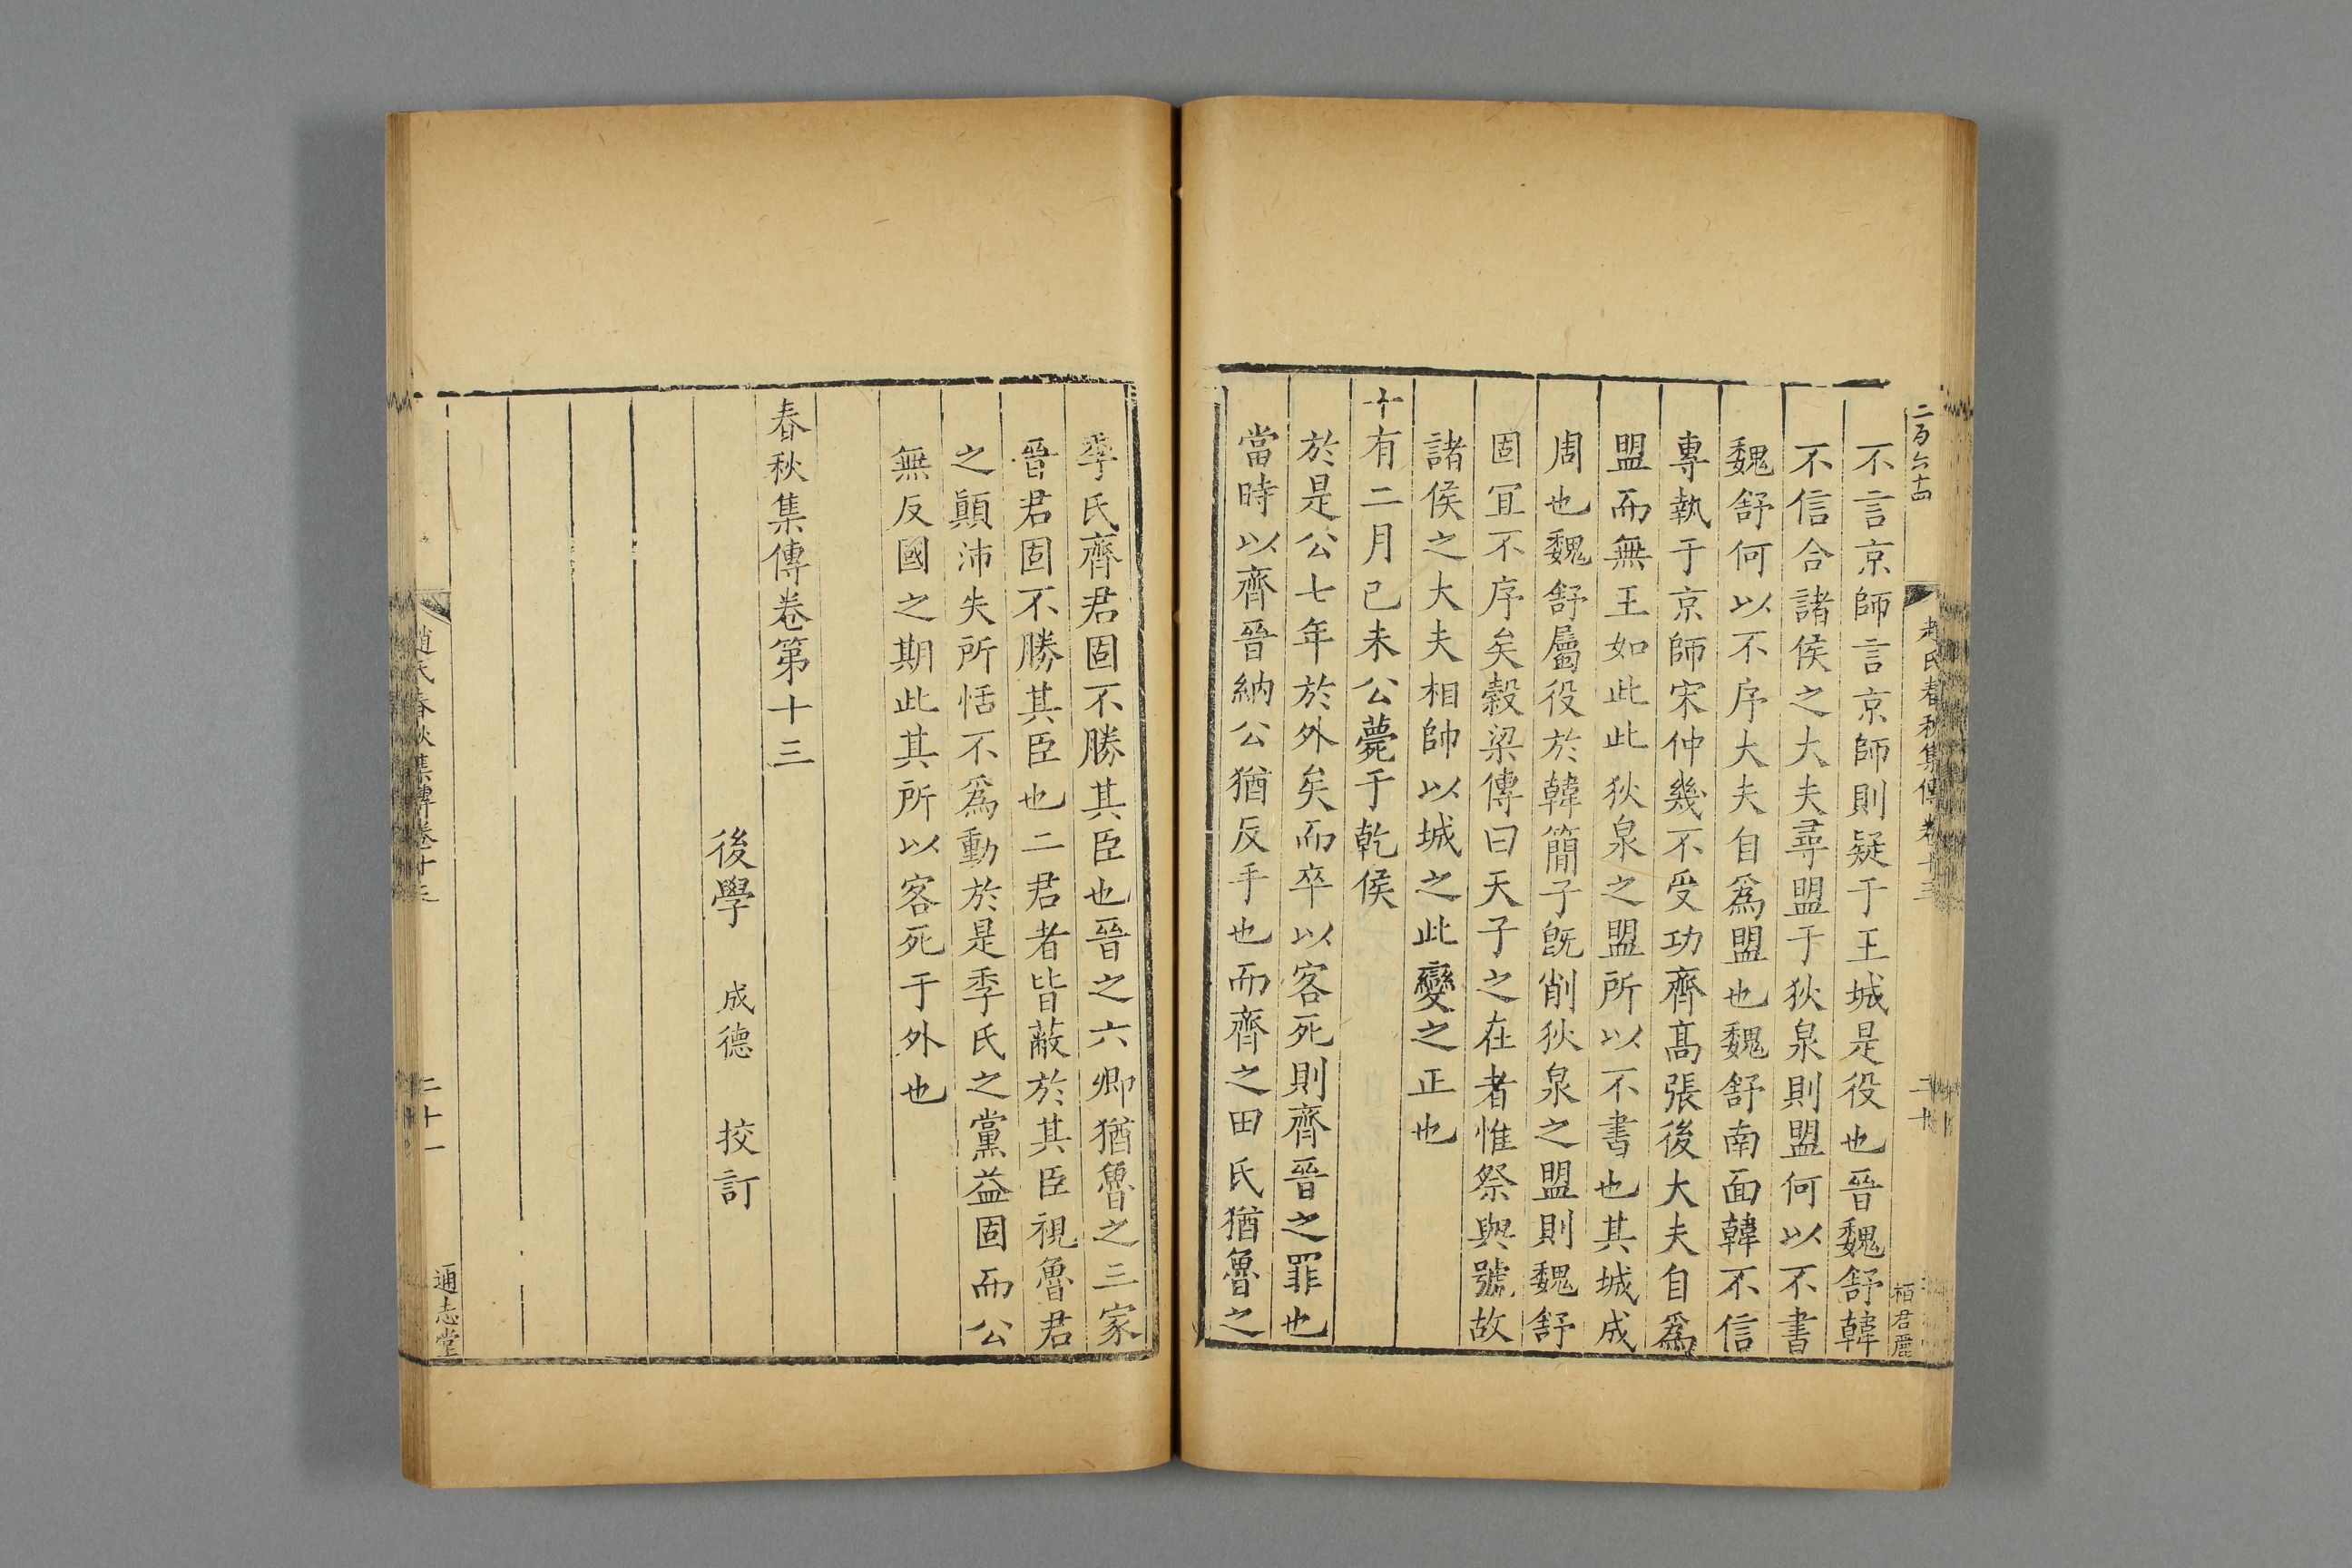 二百六十四
趙氏春秋集傳卷十三
二十
栢君麗
不言京師言京師則疑于王城是役也晉魏舒韓
不信合諸侯之大夫尋盟于狄泉則盟何以不書
魏舒何以不序大夫自爲盟也魏舒南面韓不信
專執于京師宋仲幾不受功齊髙張後大夫自爲
盟而無王如此此狄泉之盟所以不書也其城成
周也魏舒屬役於韓簡子旣削狄泉之盟則魏舒
固宜不序矣穀梁傳曰天子之在者惟祭與號故
諸侯之大夫相帥以城之此變之正也
十有二月己未公薨于乾侯
於是公七年於外矣而卒以客死則齊晉之罪也
當時以齊晉納公猶反手也而齊之田氏猶魯之
季氏齊君固不勝其臣也晉之六卿猶魯之三家
晉君固不勝其臣也二君者皆蔽於其臣視魯君
之顚沛失所恬不爲動於是季氏之黨益固而公
無反國之期此其所以客死于外也
春秋集傳卷第十三
後學 成德 挍訂
趙氏春秋集傳卷十三
二十一
通志堂